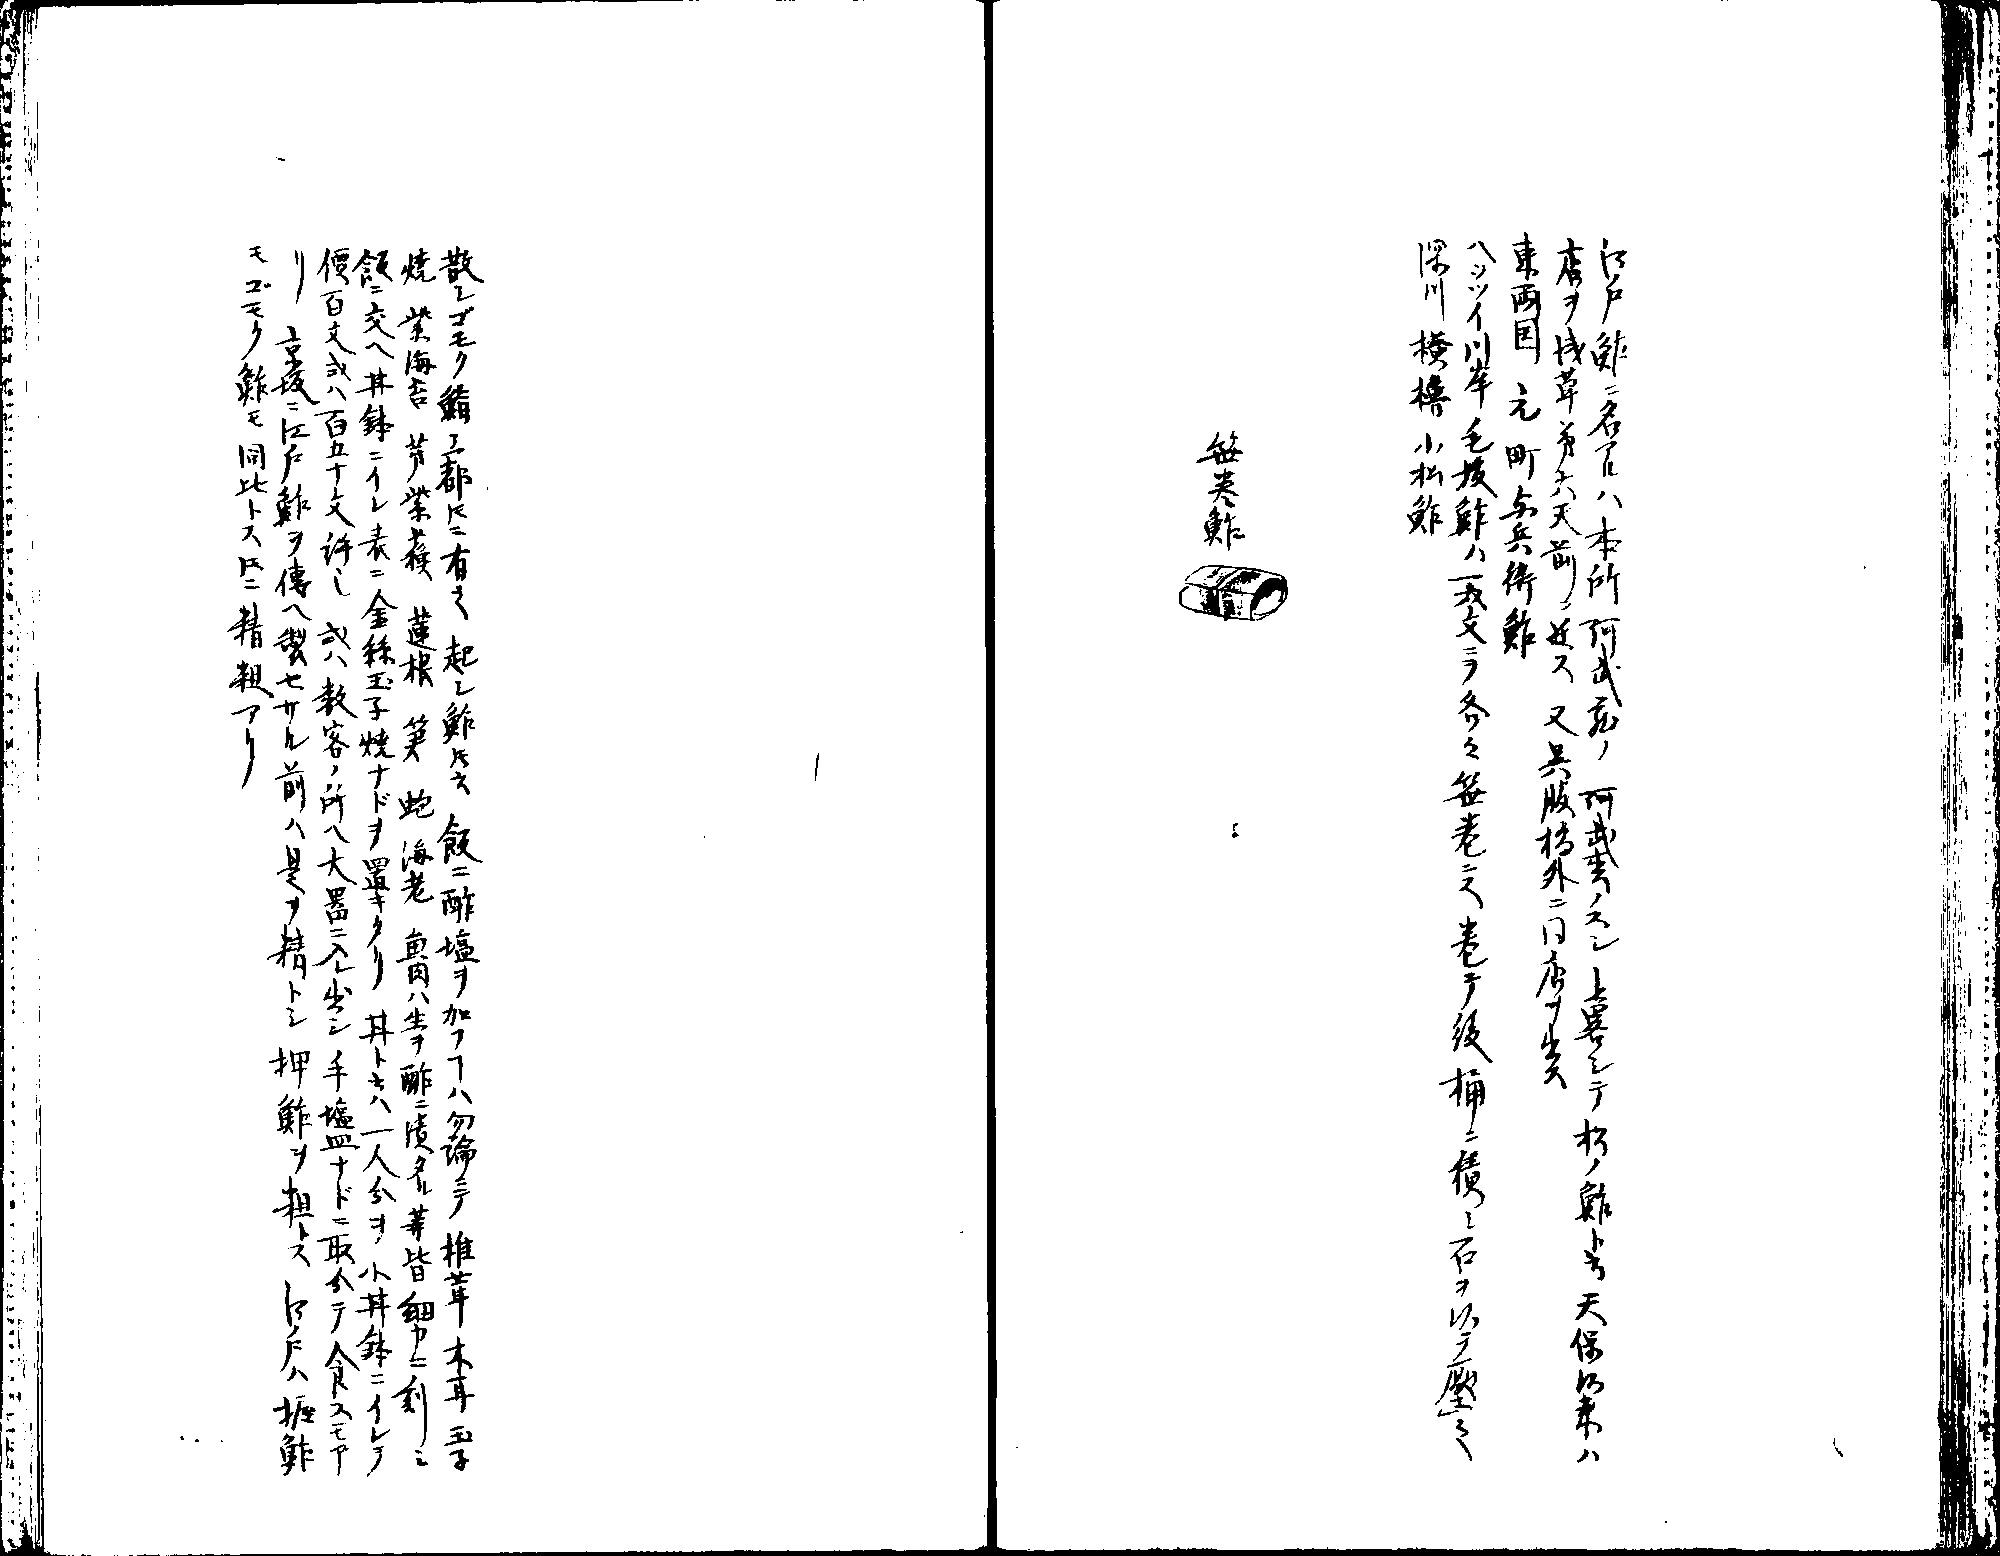 江戸鮓ニ名アルハ本所阿武蔵ノ阿武松ノスシト喜シテ松ノ鮓ト云天保以来ハ
店ヲ浅草第六天前ニ遷ス 又呉服橋外ニ同店ヲ出ス
東両国元町与兵衛鮓
ヘツツイ川岸毛抜鮓ハ一ツ六文ニテ各々笹巻ニス 巻テ後桶ニ積ミ石ヲ以テ壓ス
深川横櫓小松鮓
笹巻鮓
散シゴモク鮓三都トモニ有之 起シ鮓トモ云 飯ニ酢塩ヲ加フコハ勿論ニテ椎茸木耳玉子
焼 紫海苔 芽紫蘇 蓮根 筍 蚫 海老 魚肉ハ生ヲ酢ニ漬タル等皆細カニ刻ミ
飯ニ交ヘ丼鉢ニイレ表ニ金絲玉子焼ナドヲ置キタリ 丼ト云ハ一人分ヲ小丼鉢ニイレテ
價百文或ハ百五十文許也 或ハ数客ノ所ヘ大器ニ入レ出シ手塩皿ナドニ取分テ食スモア
リ 京坂ニ江戸鮓ヲ傳ヘ製セサル前ハ是ヲ精トシ 押鮓ヲ粗トス 江戸ハ握鮓
モゴモク鮓モ同比トス トモニ精粗アリ